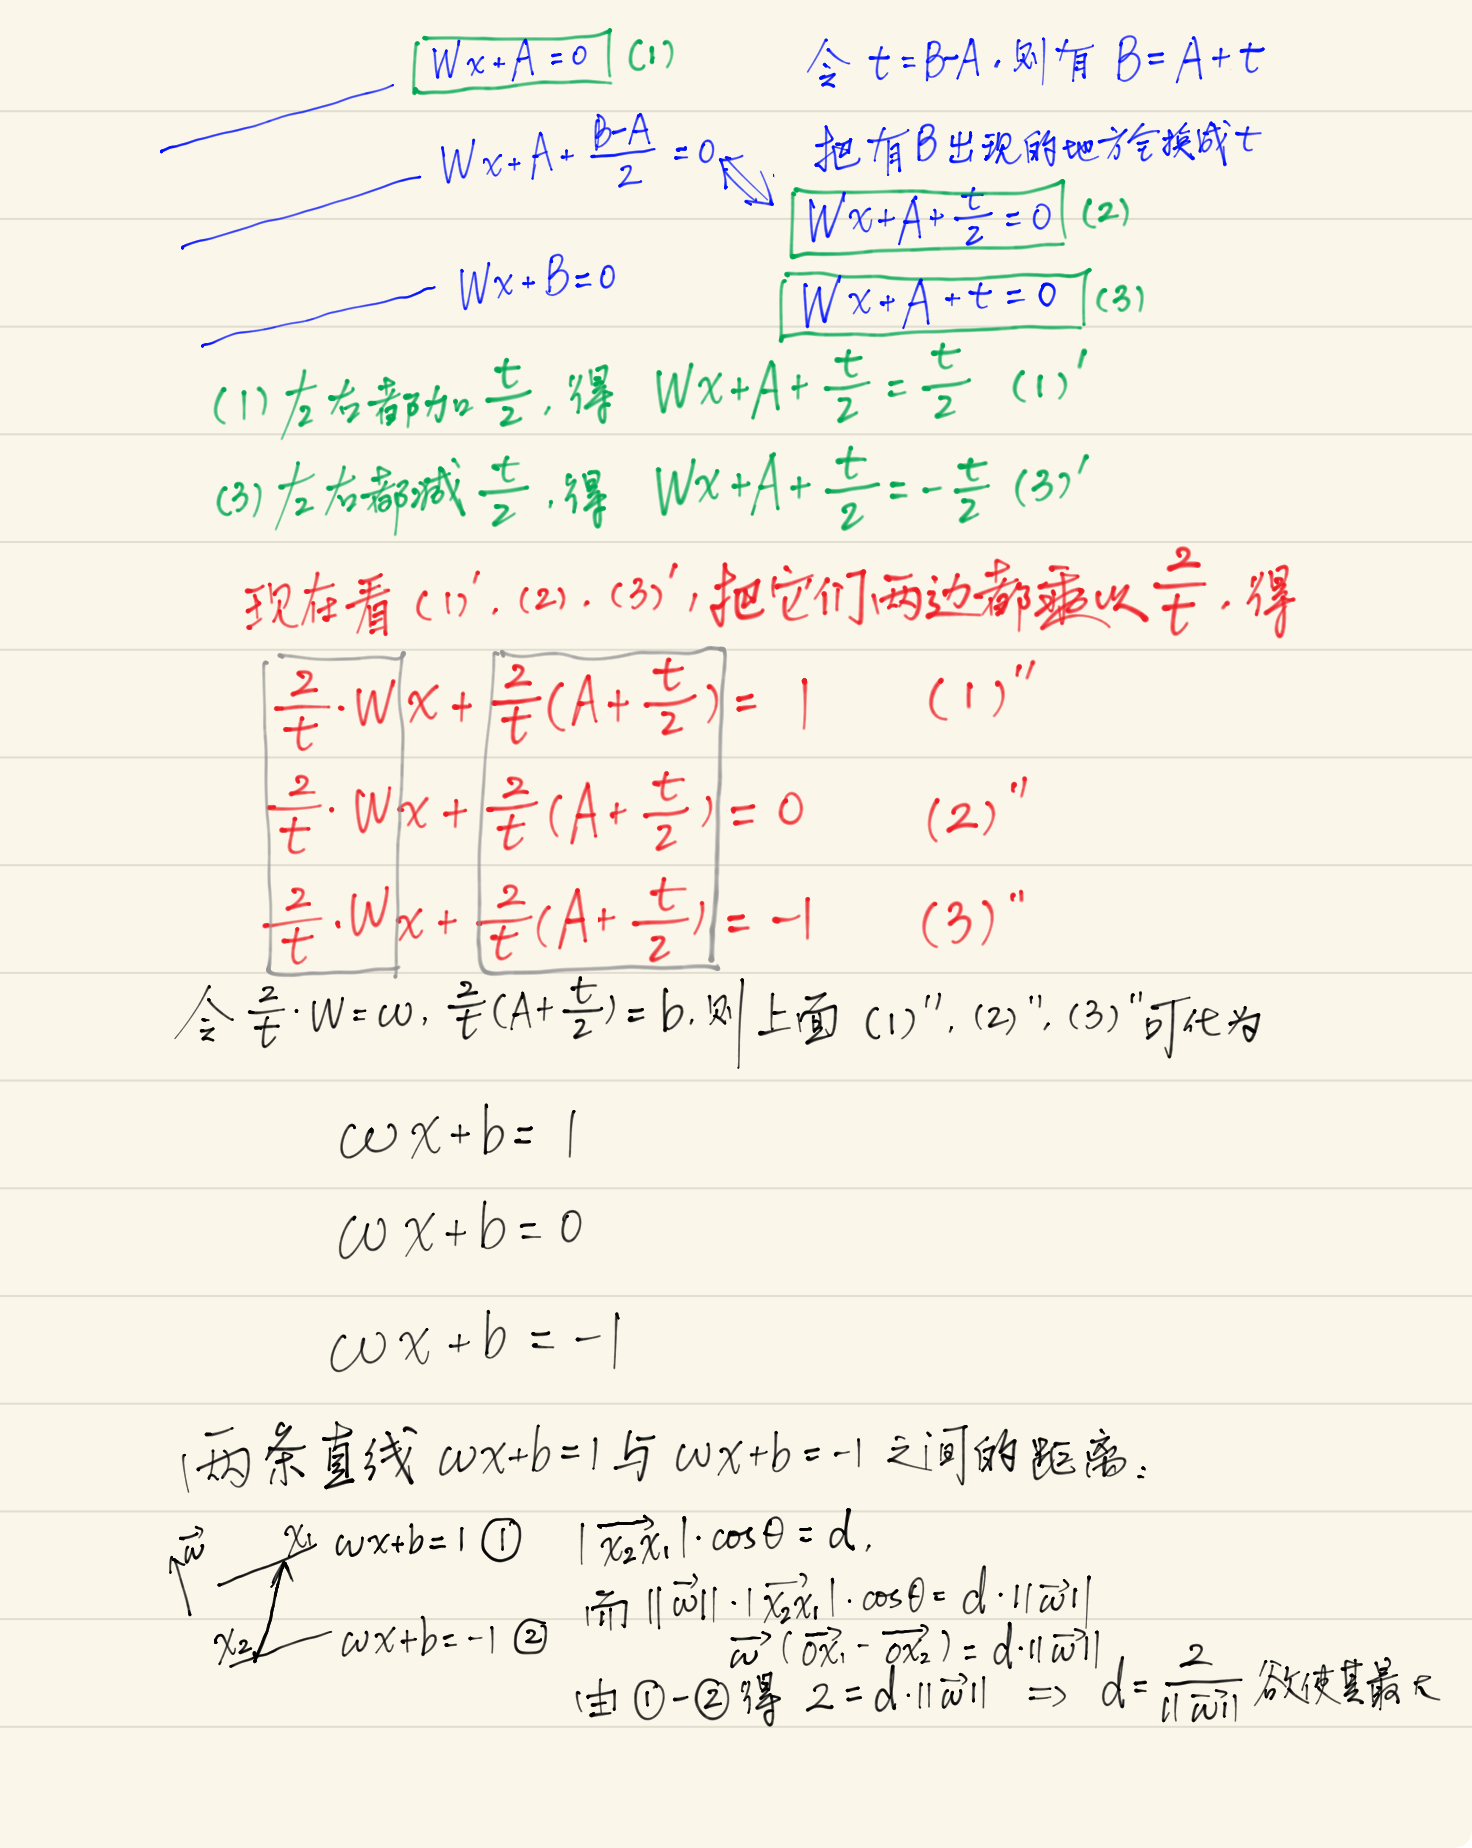 Wx+A=0 (1) 令 t=B-A,则有 B=A+t
Wx+A+\frac{B-A}{2}=0 把有B出现的地方全换成t
Wx+A+\frac{t}{2}=0 (2)
Wx+B=0
Wx+A+t=0 (3)
(1)左右都加\frac{t}{2},得 Wx+A+\frac{t}{2}=\frac{t}{2} (1)'
(3)左右都减\frac{t}{2},得 Wx+A+\frac{t}{2}=-\frac{t}{2} (3)'
现在看(1)',(2),(3)',把它们两边都乘以\frac{2}{t},得
\frac{2}{t}·Wx+\frac{2}{t}(A+\frac{t}{2})=1 (1)"
\frac{2}{t}·Wx+\frac{2}{t}(A+\frac{t}{2})=0 (2)"
\frac{2}{t}·Wx+\frac{2}{t}(A+\frac{t}{2})=-1 (3)"
令\frac{2}{t}·W=ω,\frac{2}{t}(A+\frac{t}{2})=b,则上面(1)",(2)",(3)"可化为
ωx+b=1
ωx+b=0
ωx+b=-1
两条直线 ωx+b=1与ωx+b=-1之间的距离:
\vec{ω} x₁ ωx+b=1 ① |\vec{x₂x₁}|·cosθ=d,
而||\vec{ω}||·|\vec{x₂x₁}|·cosθ=d·||\vec{ω}||
x₂ ωx+b=-1 ② \vec{ω}(\vec{ox₁}-\vec{ox₂})=d·||\vec{ω}||
由①-②得 2=d·||\vec{ω}|| => d=\frac{2}{||\vec{ω}||} 欲使其最大